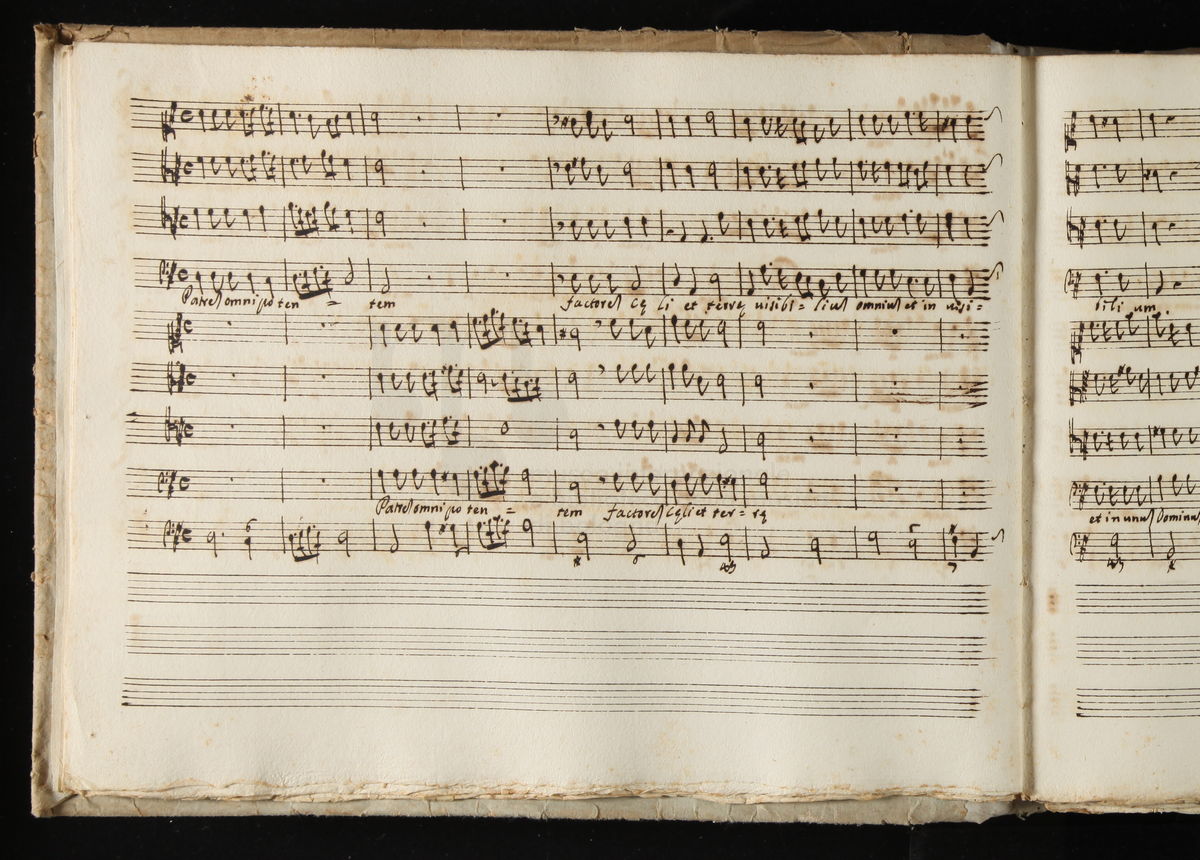 Patrem omnipoten = tem factorem cęli et terrę visibi = lium omnium et in visi =
bili um
Patrem omnipoten = tem factorem cęli et ter = rę
et in unum Dominum